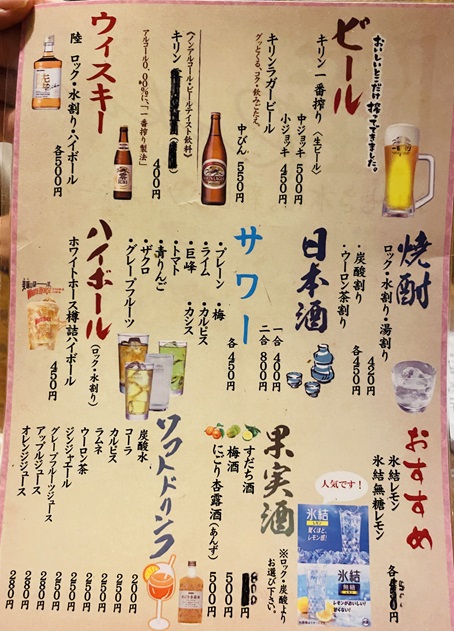 おいしいとこだけ搾ってできました。
ビール
キリン 一番搾り（生ビール）
中ジョッキ 500円
小ジョッキ 450円
キリンラガービール
グッとくる、コク・飲みごたえ。
中びん 550円
（ノンアルコール・ビールテイスト飲料）
キリン
400円
アルコール0.00%に、「一番搾り製法」
ウィスキー
陸 ロック・水割り・ハイボール
各500円
焼酎
ロック・水割り・湯割り
420円
・炭酸割り
・ウーロン茶割り
各450円
日本酒
一合 400円
二合 800円
サワー
・プレーン ・梅
・ライム ・カルピス
・巨峰 ・カシス
・トマト
・青りんご
・ザクロ
・グレープフルーツ
各450円
ハイボール
（ロック・水割り）
ホワイトホース樽詰ハイボール
450円
おすすめ
氷結レモン
氷結無糖レモン
各
円
人気です！
氷結
レモン
驚くほど、
レモン感!
氷結
無糖
レモン
レモンがおいしい!
甘くない!
果実酒
※ロック・炭酸より
お選び下さい。
すだち酒
円
梅酒 500円
にごり杏露酒（あんず） 500円
ソフトドリンク
炭酸水 200円
コーラ 250円
カルピス 250円
ラムネ 250円
ウーロン茶 250円
ジンジャエール 250円
グレープフルーツジュース 250円
アップルジュース 250円
オレンジジュース 250円